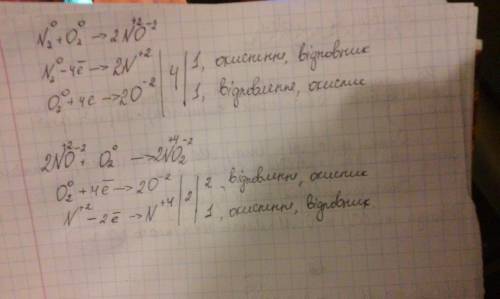 N₂⁰ + O₂⁰ → 2N⁺²O⁻²
N₂⁰ - 4e̅ → 2N⁺² | 4 | 1, окислення, відновник
O₂⁰ + 4e → 2O⁻² | 1, відновлення, окисник
2N⁺²O⁻² + O₂⁰ → 2N⁺⁴O₂⁻²
O₂⁰ + 4e̅ → 2O⁻² | 2 | 2, відновлення, окисник
N⁺² - 2e̅ → N⁺⁴ | 1, окислення, відновник